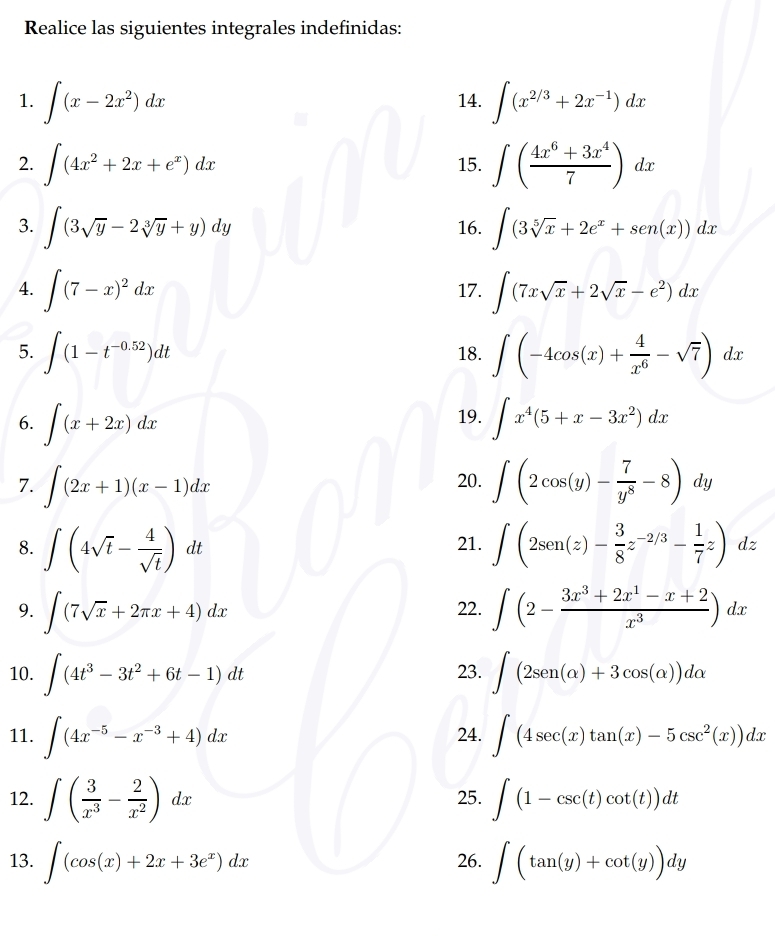 Realice las siguientes integrales indefinidas:
1. ∫(x − 2x²) dx
2. ∫(4x² + 2x + eˣ) dx
3. ∫(3√y − 2∛y + y) dy
4. ∫(7 − x)² dx
5. ∫(1 − t^{−0.52})dt
6. ∫(x + 2x) dx
7. ∫(2x + 1)(x − 1)dx
8. ∫(4√t − 4/√t) dt
9. ∫(7√x + 2πx + 4) dx
10. ∫(4t³ − 3t² + 6t − 1) dt
11. ∫(4x⁻⁵ − x⁻³ + 4) dx
12. ∫(3/x³ − 2/x²) dx
13. ∫(cos(x) + 2x + 3eˣ) dx
14. ∫(x^{2/3} + 2x⁻¹) dx
15. ∫((4x⁶ + 3x⁴)/7) dx
16. ∫(3⁵√x + 2eˣ + sen(x)) dx
17. ∫(7x√x + 2√x − e²) dx
18. ∫(−4cos(x) + 4/x⁶ − √7) dx
19. ∫x⁴(5 + x − 3x²) dx
20. ∫(2 cos(y) − 7/y⁸ − 8) dy
21. ∫(2sen(z) − 3/8 z^{−2/3} − 1/7 z) dz
22. ∫(2 − (3x³ + 2x¹ − x + 2)/x³) dx
23. ∫(2sen(α) + 3 cos(α))dα
24. ∫(4 sec(x) tan(x) − 5 csc²(x))dx
25. ∫(1 − csc(t) cot(t))dt
26. ∫(tan(y) + cot(y))dy